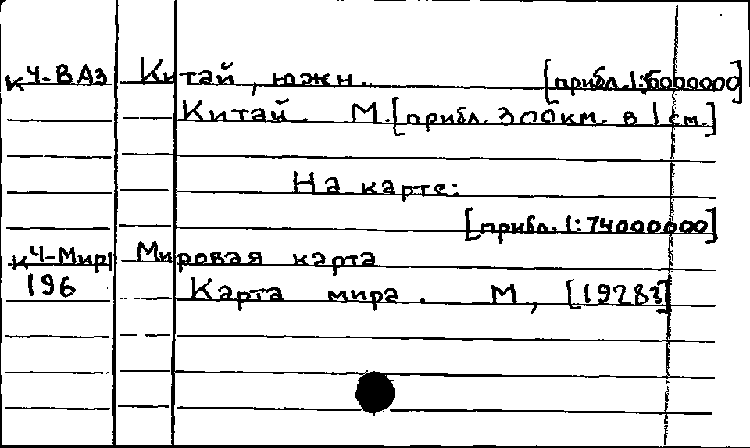 кЧ-В Аз Китай, южн. [прибл. 1:6000000]
Китай. М. [прибл. 300км. в 1 см.]
На карте:
[прибл. 1:74000000]
кЧ-Мир Мировая карта
196 Карта мира. М, [1928?]